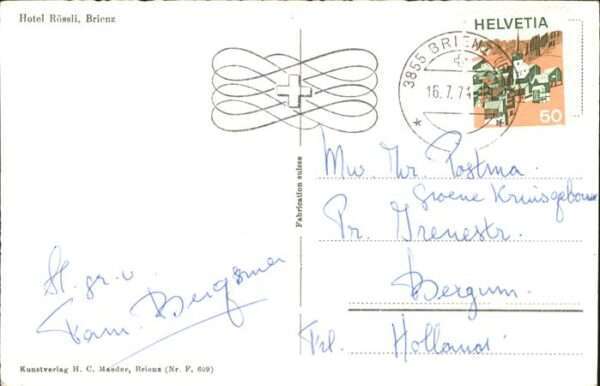 Hotel Rössli, Brienz
HELVETIA
3855 BRIENZ
16.7.7
50
Fabrication suisse
Mw. Hr. Postma
Groene Kruisgebouw
Pr. Irenestr.
Bergum.
Frl. Holland
Hl. gr. v.
Fam. Bergsma
Kunstverlag H. C. Maeder, Brienz (Nr. F. 609)